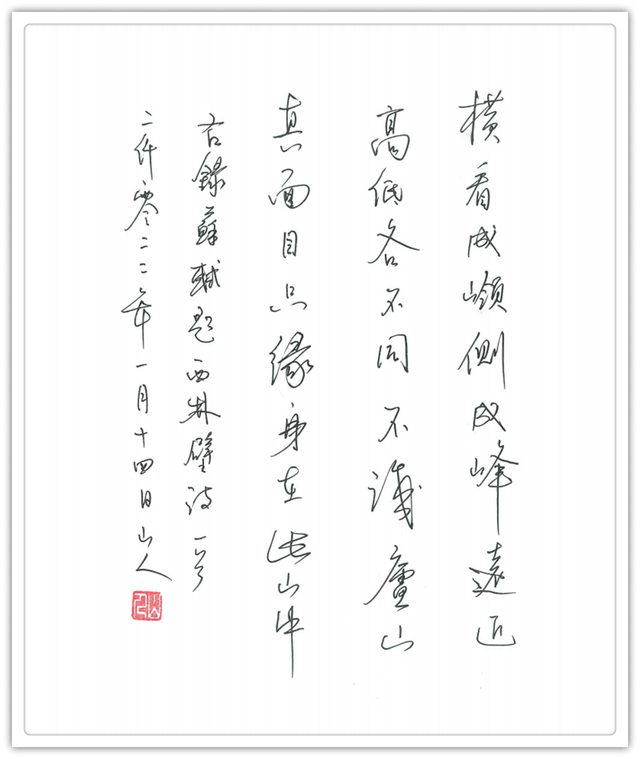 橫看成嶺側成峰遠近
高低各不同不識廬山
真面目只緣身在此山中
右錄蘇軾題西林壁詩一首
二仟零二二年一月十四日山人